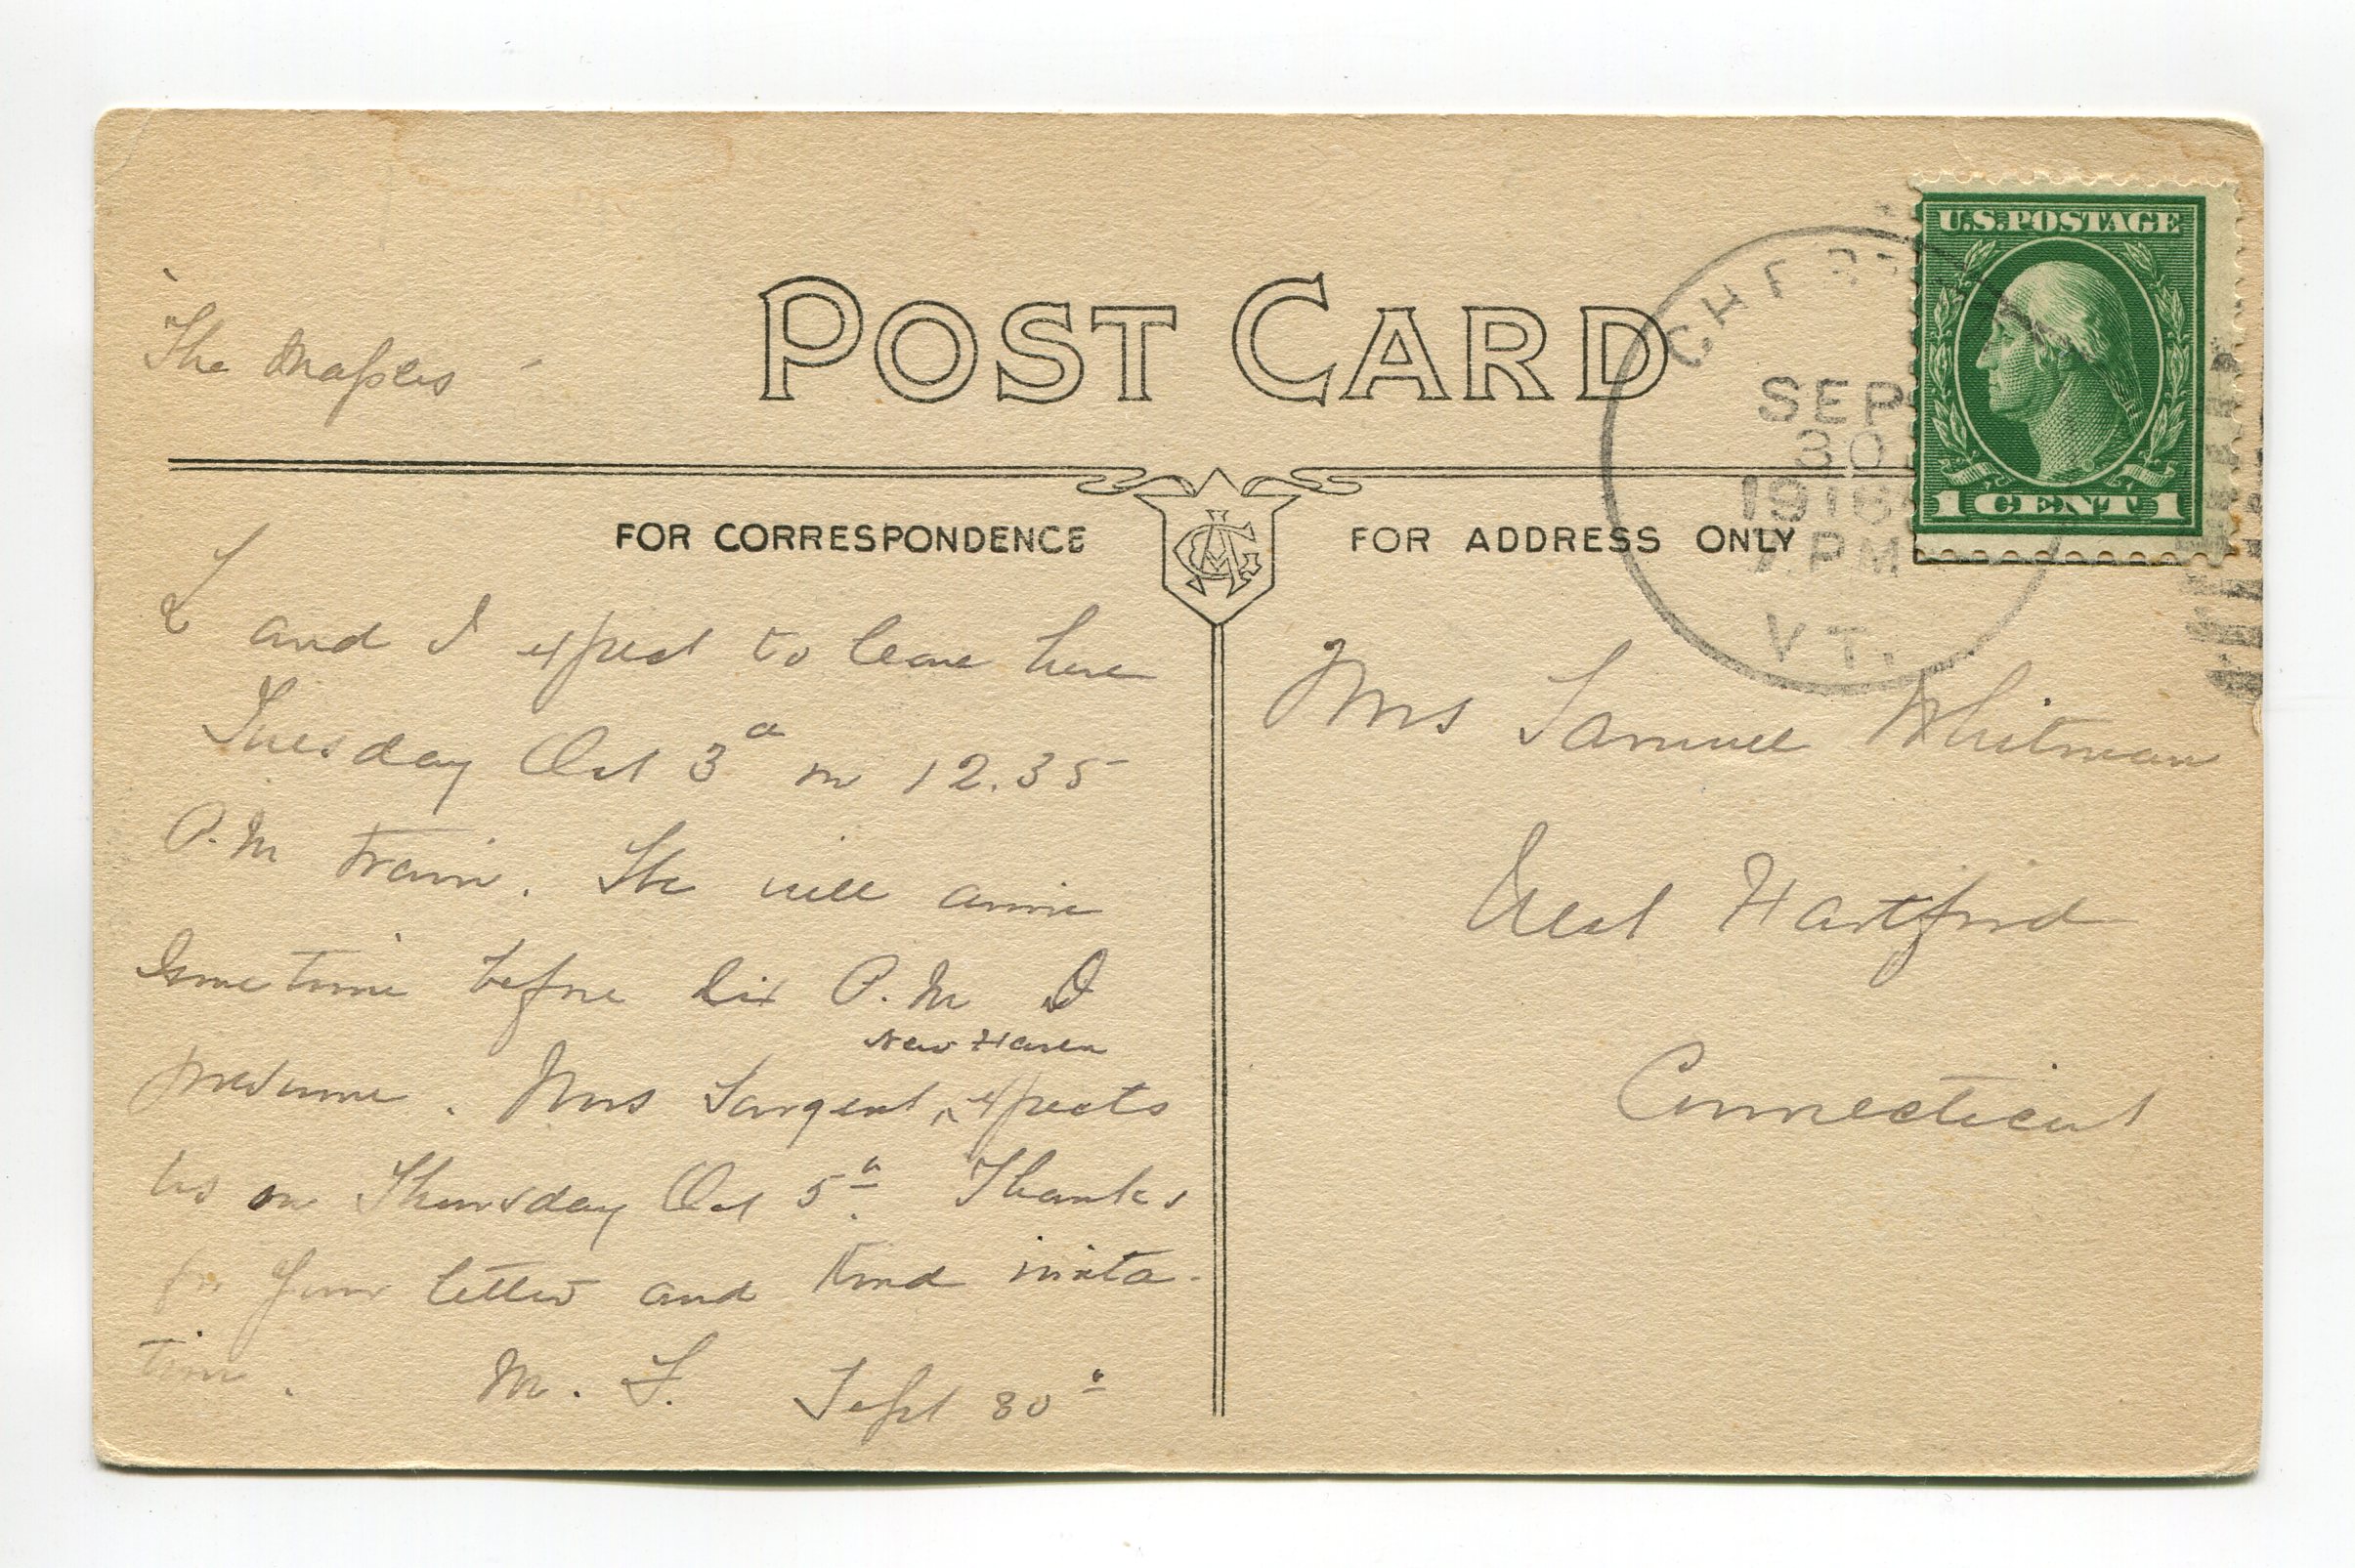 The Maples
POST CARD
FOR CORRESPONDENCE
FOR ADDRESS ONLY
U.S. POSTAGE
1 CENT 1
SEP
30
1916
PM
VT.
and I expect to leave here
Tuesday Oct 3d on 12.35
P.M train. We will arrive
Sometime before six P.M I
presume. Mrs Sargent, expects
New Haven
us on Thursday Oct 5th Thanks
for your letter and kind invita-
tion. M. F. Sept 30th
Mrs Samuel Whitman
West Hartford
Connecticut